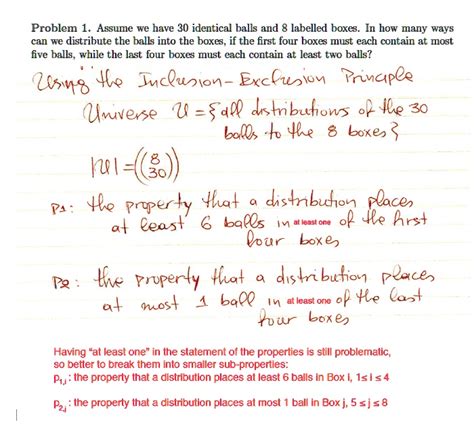 Problem 1. Assume we have 30 identical balls and 8 labelled boxes. In how many ways
can we distribute the balls into the boxes, if the first four boxes must each contain at most
five balls, while the last four boxes must each contain at least two balls?
Using the Inclusion-Exclusion Principle
Universe U = {all distributions of the 30
balls to the 8 boxes}
|U| = ((8
30))
P1: the property that a distribution places
at least 6 balls in at least one of the first
four boxes
P2: the property that a distribution places
at most 1 ball in at least one of the last
four boxes
Having "at least one" in the statement of the properties is still problematic,
so better to break them into smaller sub-properties:
P1,i: the property that a distribution places at least 6 balls in Box i, 1≤i≤4
P2,j: the property that a distribution places at most 1 ball in Box j, 5≤j≤8